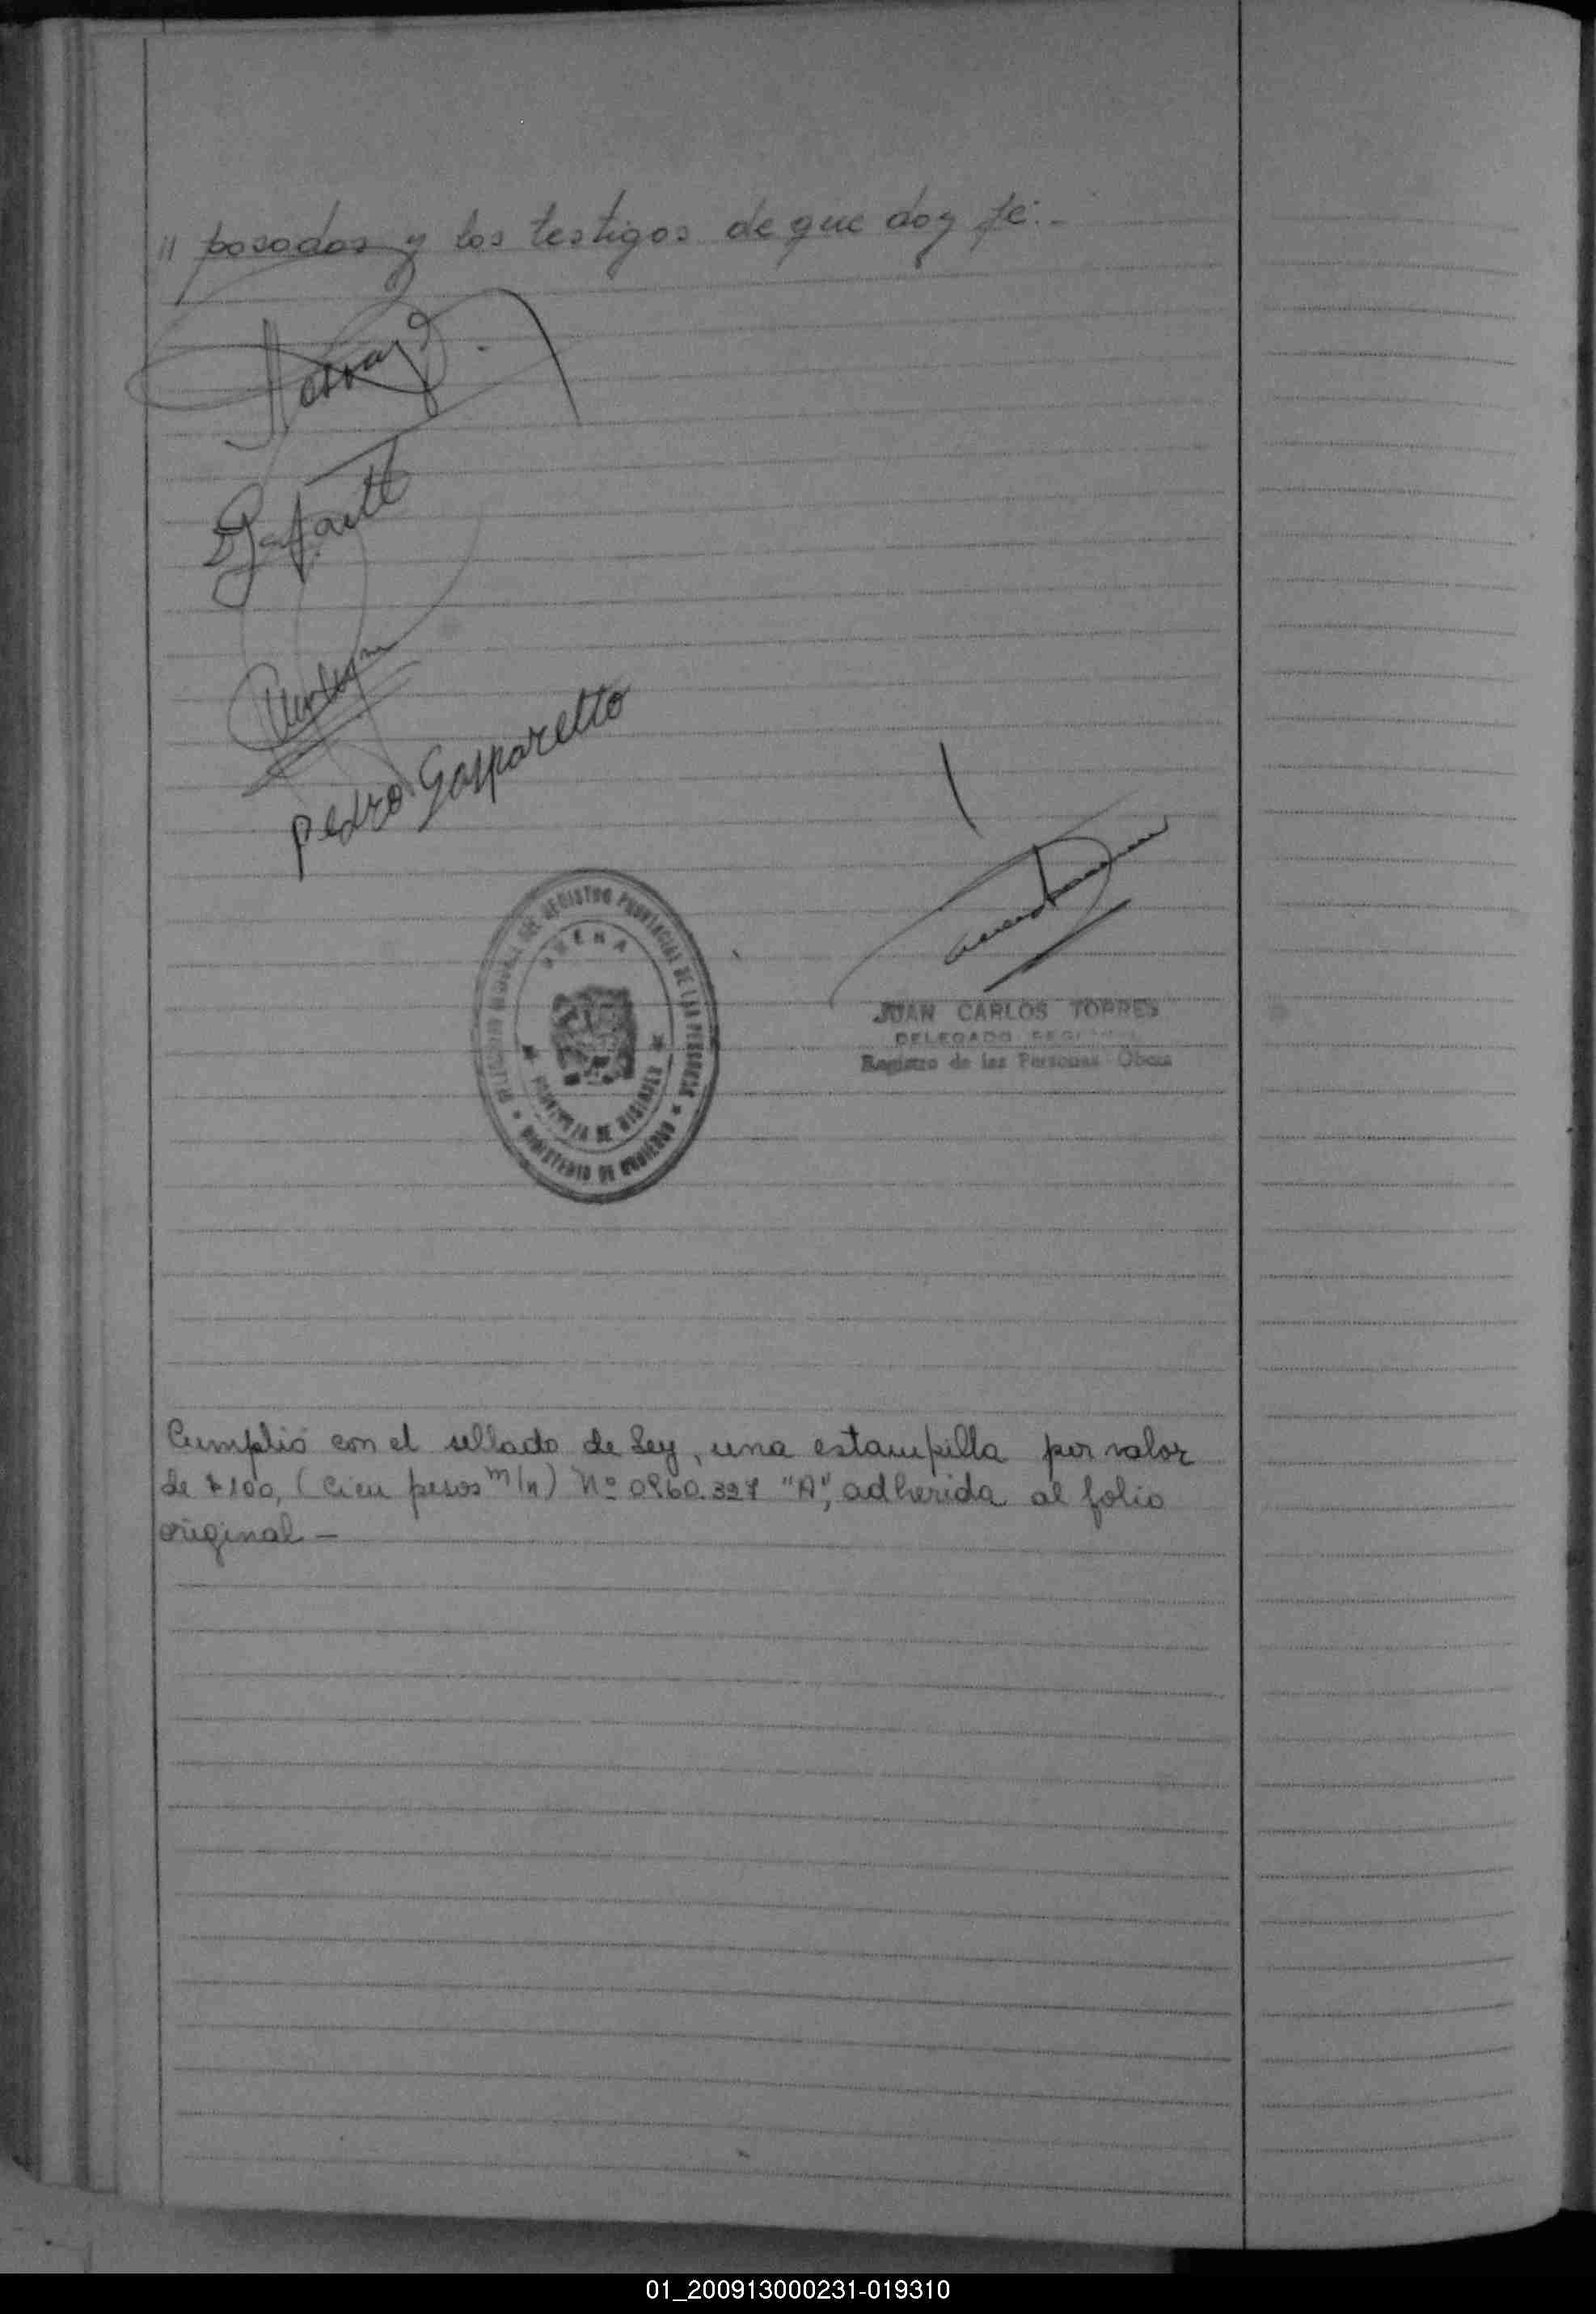 " posados y los testigos de que doy fé:-
Pedro Gasparetto
REGISTRO PROVINCIAL DE LAS PERSONAS
OBERA
PROVINCIA DE MISIONES
MINISTERIO DE GOBIERNO
JUAN CARLOS TORRES
DELEGADO
Registro de las Personas Oberá
Cumplió con el sellado de Ley, una estampilla por valor
de $ 100, (Cien pesos m/n) Nº 0960.327 "A", adherida al folio
original —
01_200913000231-019310